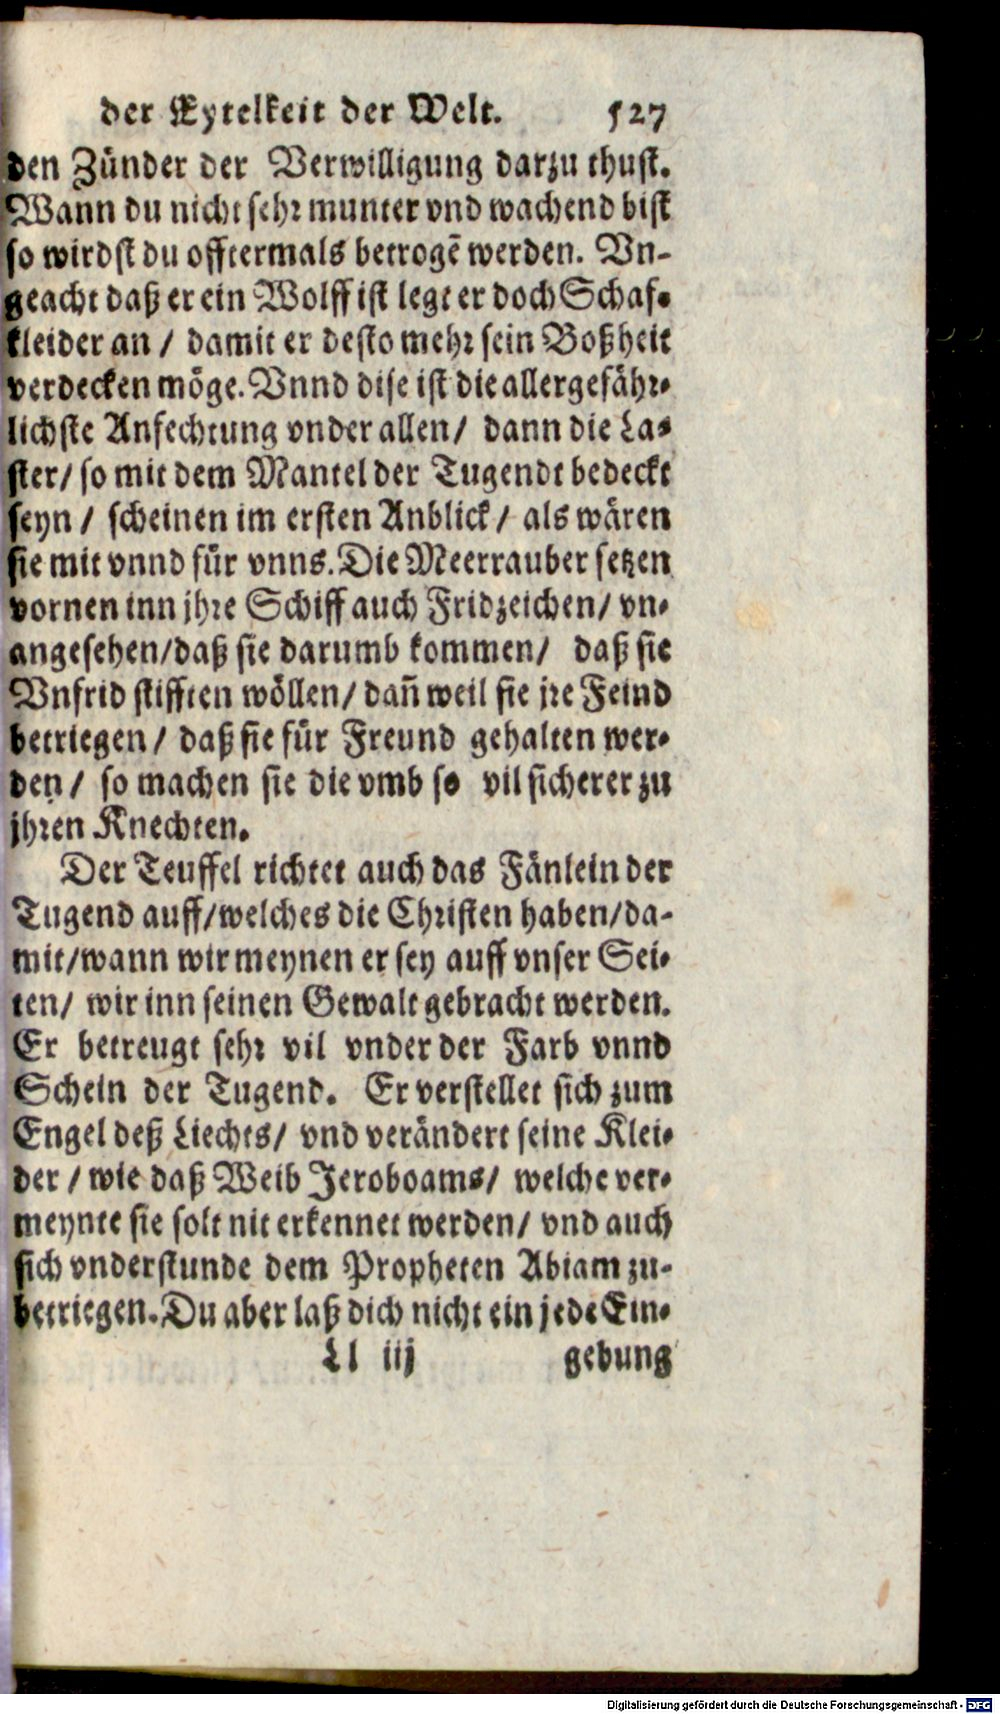 der Eytelkeit der Welt. 527
den Zünder der Verwilligung darzu thust.
Wann du nicht sehr munter vnd wachend bist
so wirdst du offtermals betrogē werden. Vn-
geacht daß er ein Wolff ist legt er doch Schaf-
kleider an / damit er desto mehr sein Boßheit
verdecken möge. Vnnd dise ist die allergefähr-
lichste Anfechtung vnder allen / dann die La-
ster / so mit dem Mantel der Tugendt bedeckt
seyn / scheinen im ersten Anblick / als wären
sie mit vnnd für vnns. Die Meerrauber setzen
vornen inn jhre Schiff auch Fridzeichen / vn-
angesehen / daß sie darumb kommen / daß sie
Vnfrid stifften wöllen / dañ weil sie jre Feind
betriegen / daß sie für Freund gehalten wer-
den / so machen sie die vmb so vil sicherer zu
jhren Knechten.
Der Teuffel richtet auch das Fänlein der
Tugend auff / welches die Christen haben / da-
mit / wann wir meynen er sey auff vnser Sei-
ten / wir inn seinen Gewalt gebracht werden.
Er betreugt sehr vil vnder der Farb vnnd
Schein der Tugend. Er verstellet sich zum
Engel deß Liechts / vnd verändert seine Klei-
der / wie daß Weib Jeroboams / welche ver-
meynte sie solt nit erkennet werden / vnd auch
sich vnderstunde dem Propheten Abiam zu-
betriegen. Du aber laß dich nicht ein jede Ein-
Ll iij gebung
Digitalisierung gefördert durch die Deutsche Forschungsgemeinschaft - DFG